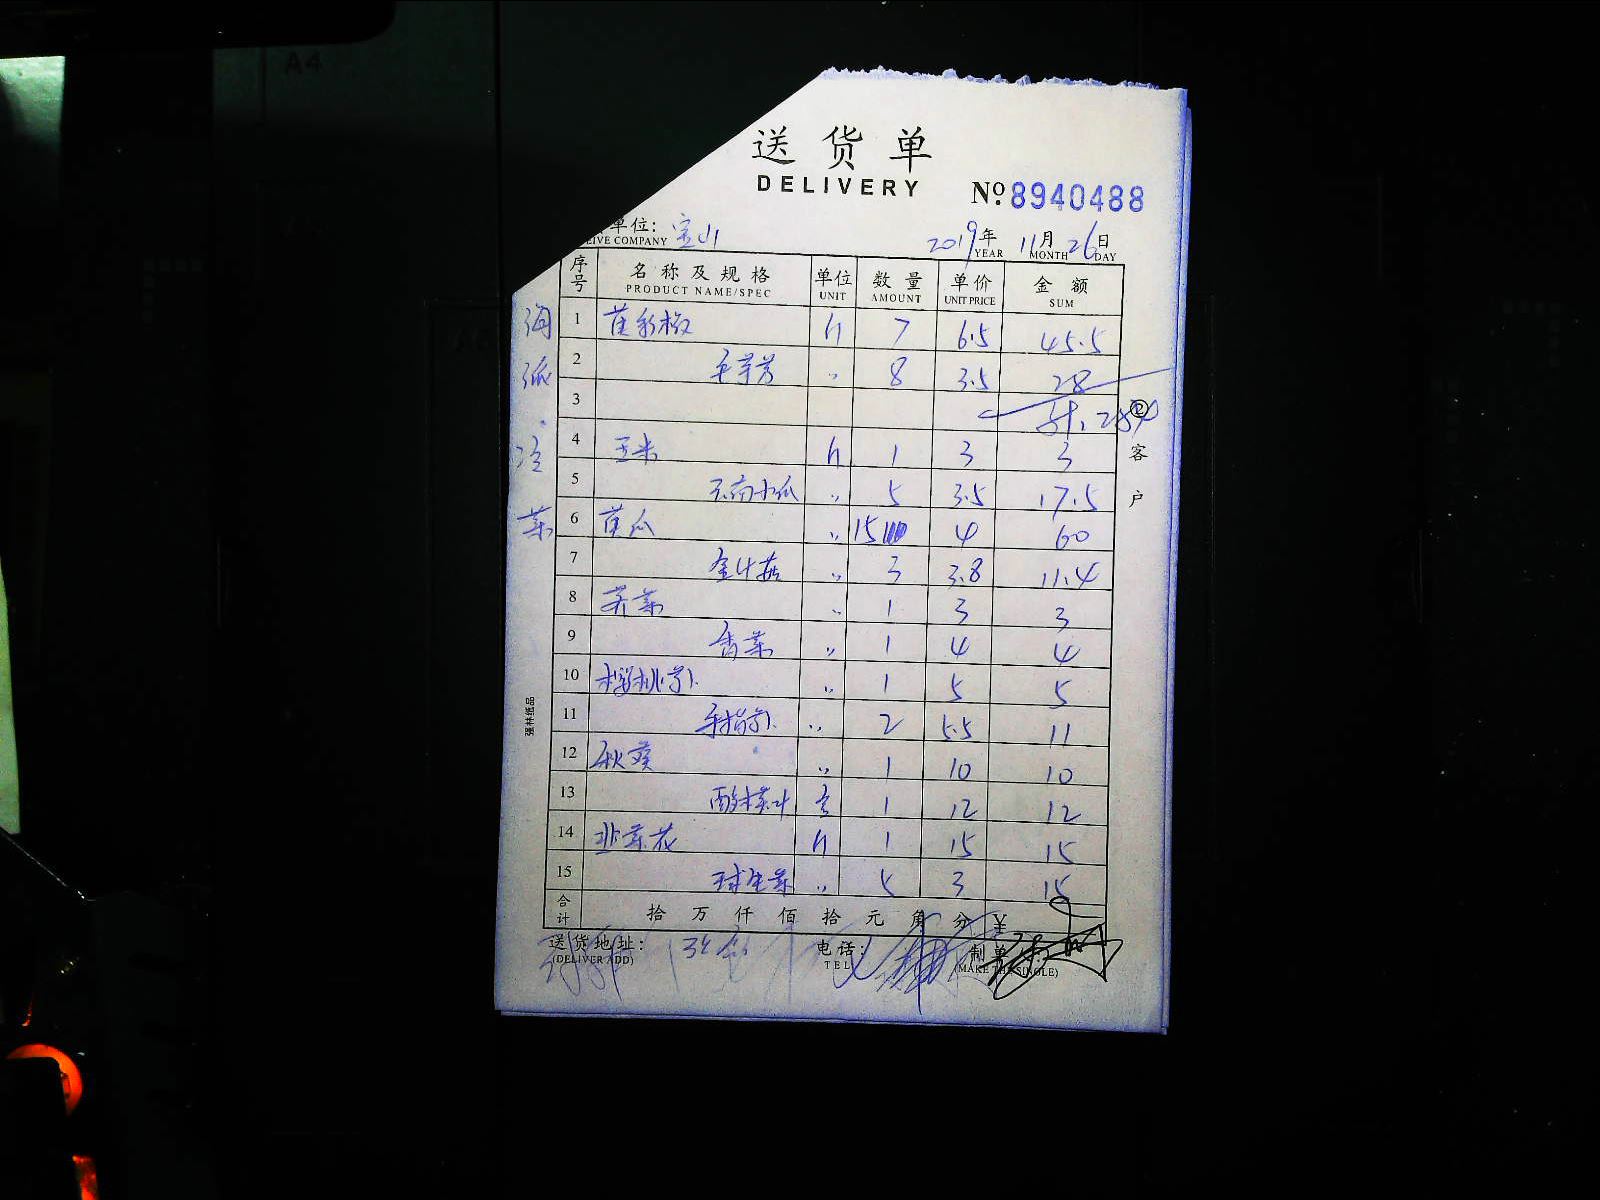 A4
送货单
DELIVERY
№ 8940488
单位: 宝山
EIVE COMPANY
2019年 11月 26日
YEAR MONTH DAY
序号 名称及规格 单位 数量 单价 金额
PRODUCT NAME/SPEC UNIT AMOUNT UNIT PRICE SUM
海派冷菜
1 黄彩椒 斤 7 6.5 45.5
2 毛芋艿 〃 8 3.5 28
3
4 玉米 斤 1 3 3
5 云南小瓜 〃 5 3.5 17.5
6 黄瓜 〃 15 4 60
7 金针菇 〃 3 3.8 11.4
8 芹菜 〃 1 3 3
9 香菜 〃 1 4 4
10 樱桃萝卜 〃 1 5 5
11 手指萝卜 〃 2 5.5 11
12 秋葵 〃 1 10 10
13 酸模叶 盒 1 12 12
14 韭菜花 斤 1 15 15
15 球生菜 〃 5 3 15
合计 拾 万 仟 佰 拾 元 角 分 ¥
送货地址: 电话: 制单
(DELIVER ADD) TEL (MAKE THE SINGLE)
② 客户
强林纸品